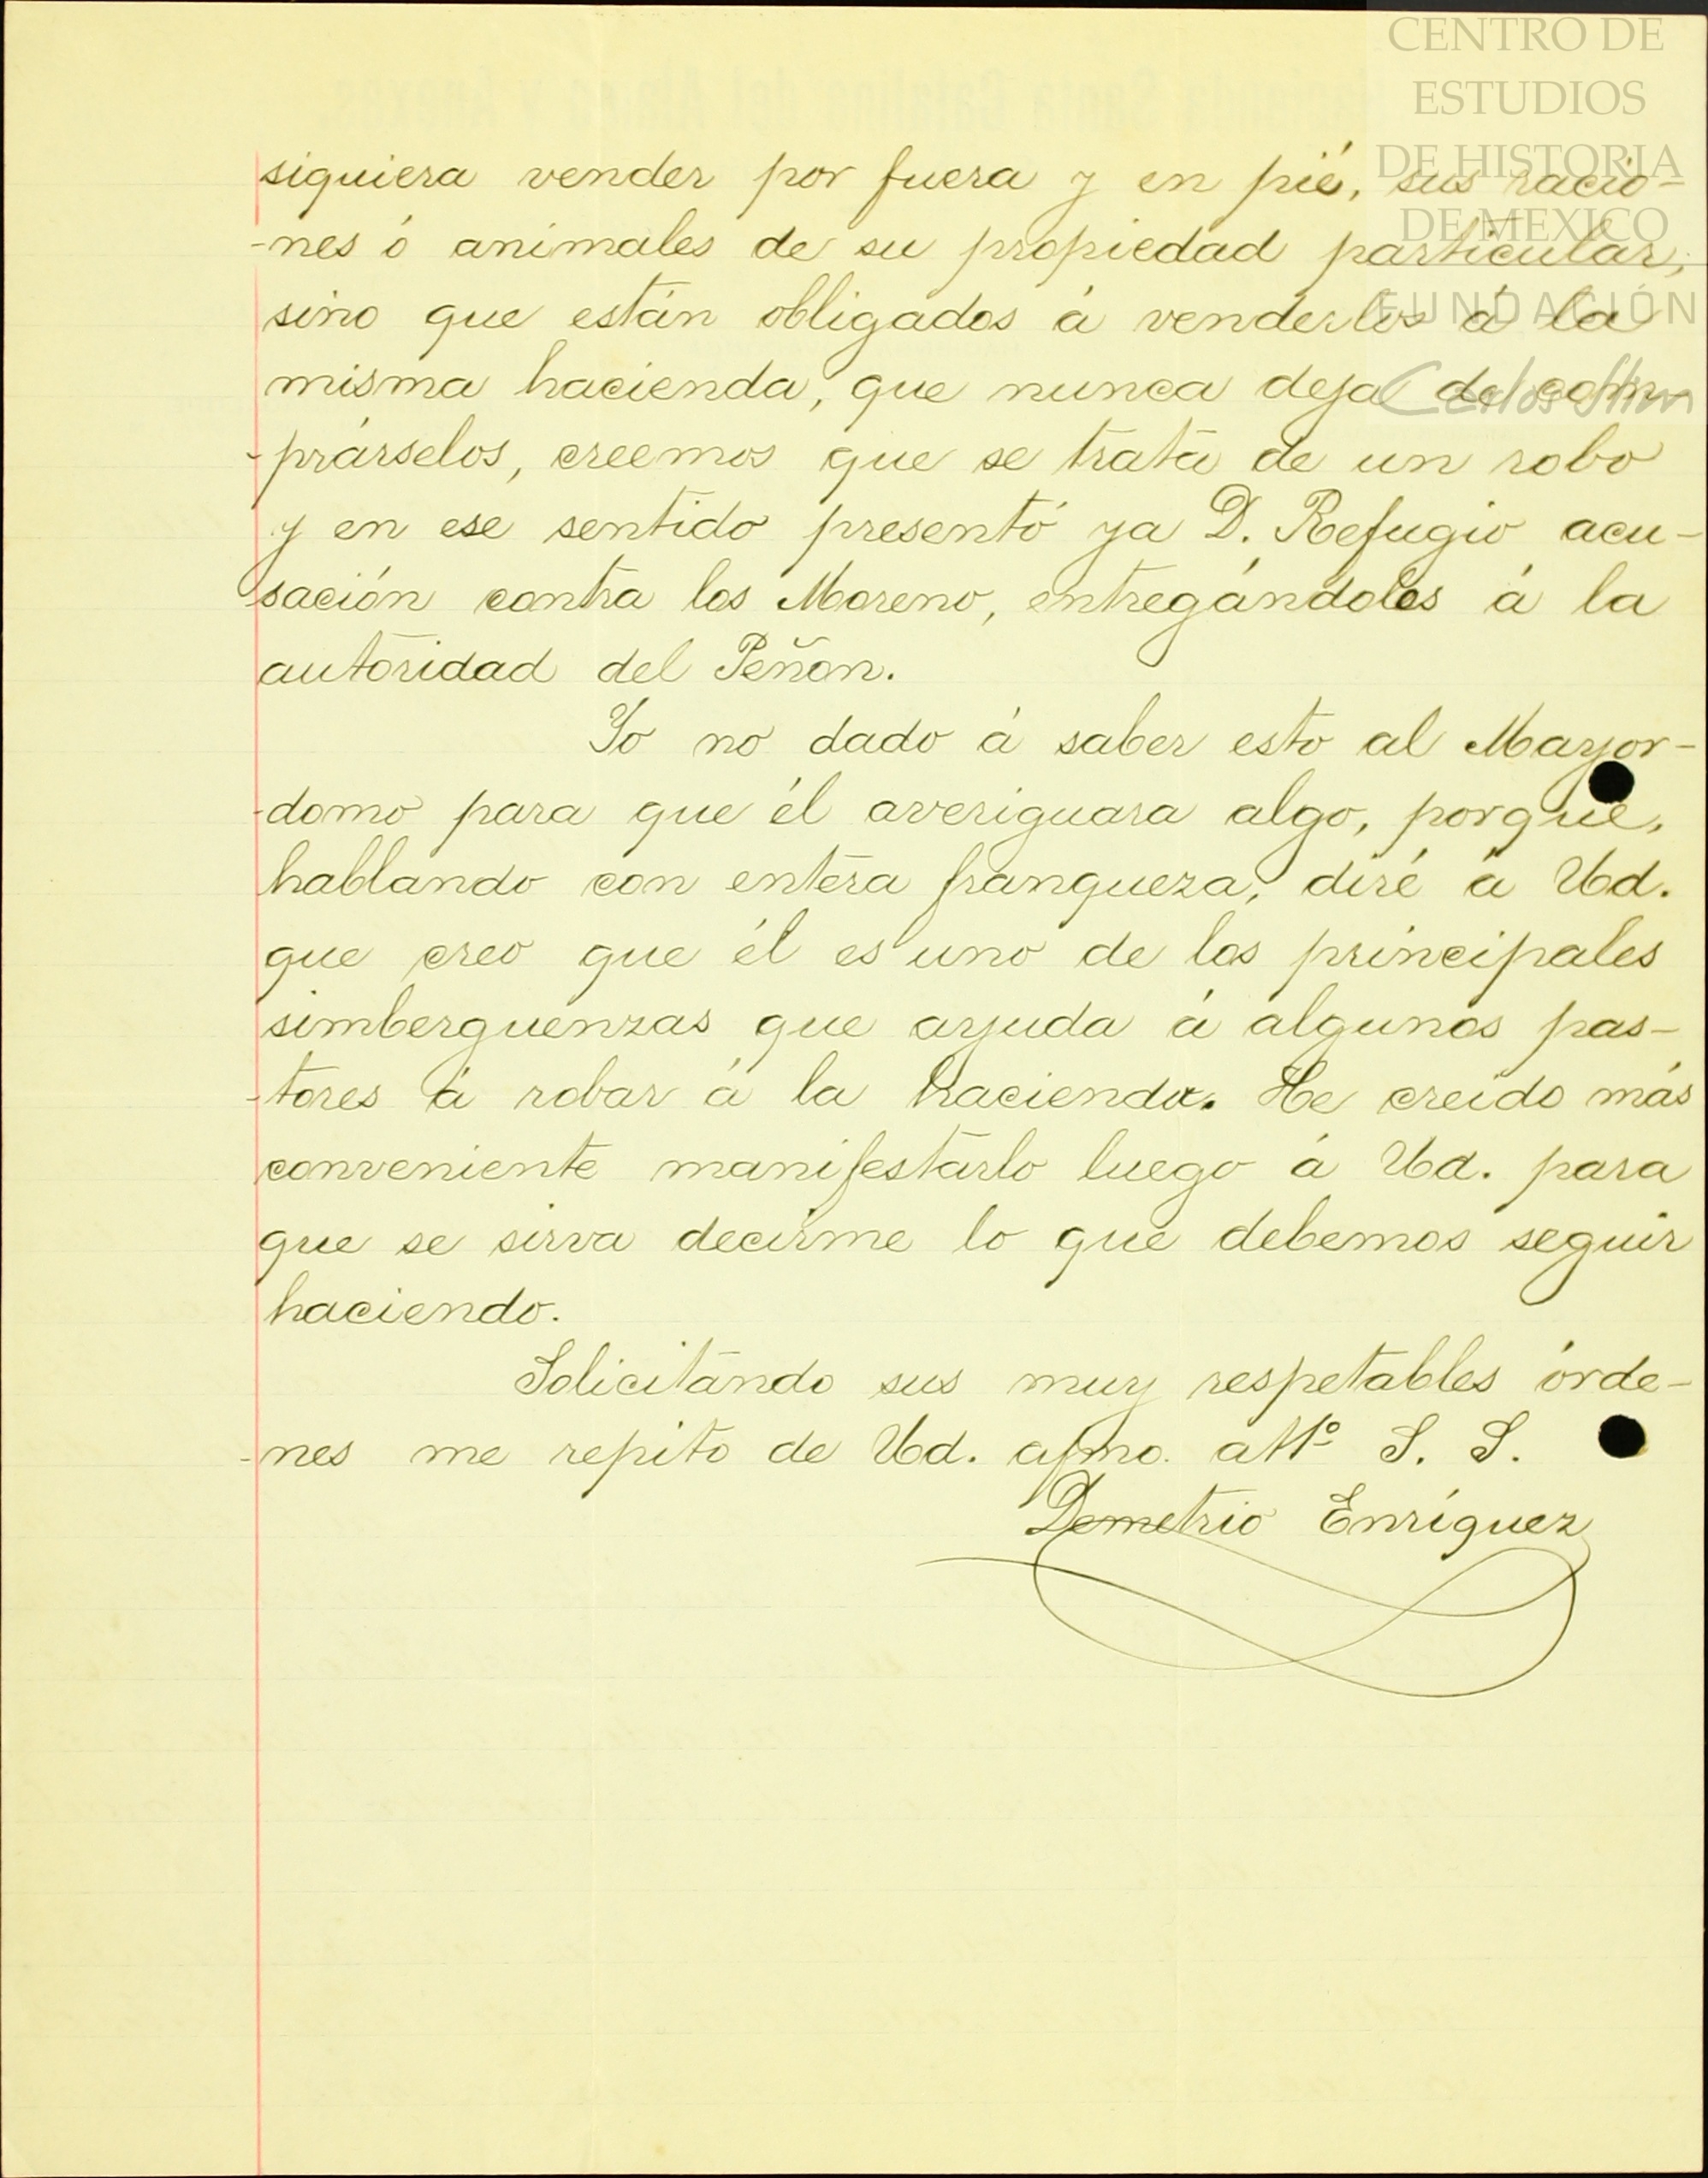 CENTRO DE
ESTUDIOS
DE HISTORIA
DE MEXICO
FUNDACIÓN
Carlos Slim
siquiera vender por fuera y en pié, sus racio-
-nes ó animales de su propiedad particular,
sino que están obligados á venderlos á la
misma hacienda, que nunca deja de com-
-prárselos, creemos que se trata de un robo
y en ese sentido presentó ya D. Refugio acu-
sación contra los Moreno, entregándolos á la
autoridad del Peñon.
Yo no dado á saber esto al Mayor-
-domo para que él averiguara algo, porque,
hablando con entera franqueza, diré á Ud.
que creo que él es uno de los principales
simberguenzas que ayuda á algunos pas-
-tores á robar á la hacienda. He creido más
conveniente manifestarlo luego á Ud. para
que se sirva decirme lo que debemos seguir
haciendo.
Solicitando sus muy respetables órde-
-nes me repito de Ud. afmo. attº S. S.
Demetrio Enríquez